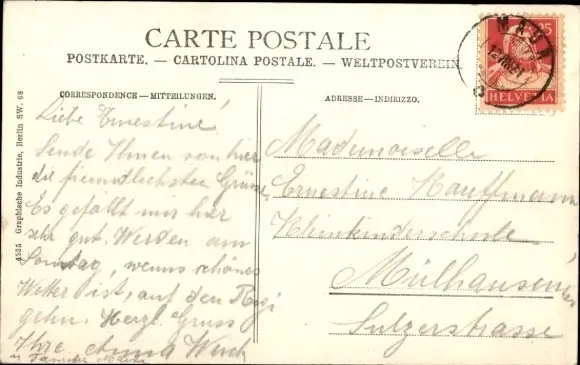 CARTE POSTALE
POSTKARTE. — CARTOLINA POSTALE. — WELTPOSTVEREIN
CORRESPONDENCE — MITTEILUNGEN.
Liebe Ernestine!
Sende Ihnen von hier
die freundlichsten Grüsse,
Es gefällt mir hier
sehr gut. Werden am
Sonntag, wenns schönes
Wetter ist, auf den Rigi
gehn. Herzl. Gruss
Ihre Anna
ADRESSE — INDIRIZZO.
Mademoiselle
Ernestine Kauffmann
Kleinkinderschule
Mülhausen
Sulzerstrasse
25
HELVETIA
4535 Graphische Industrie, Berlin SW. 68